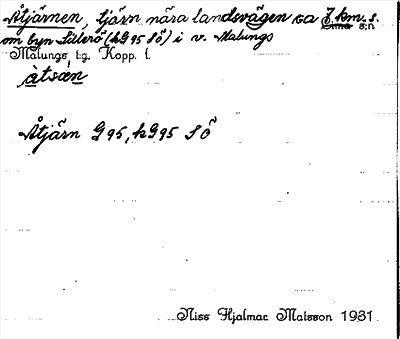 Åtjärnen, tjärn nära landsvägen ca 7 km. s.
om byn Lillerö (hG95 SÖ) i v. Malungs
Malungs tg. Kopp. l.
àtsæn
Åtjärn G95, hG95 SÖ
Niss Hjalmar Matsson 1931